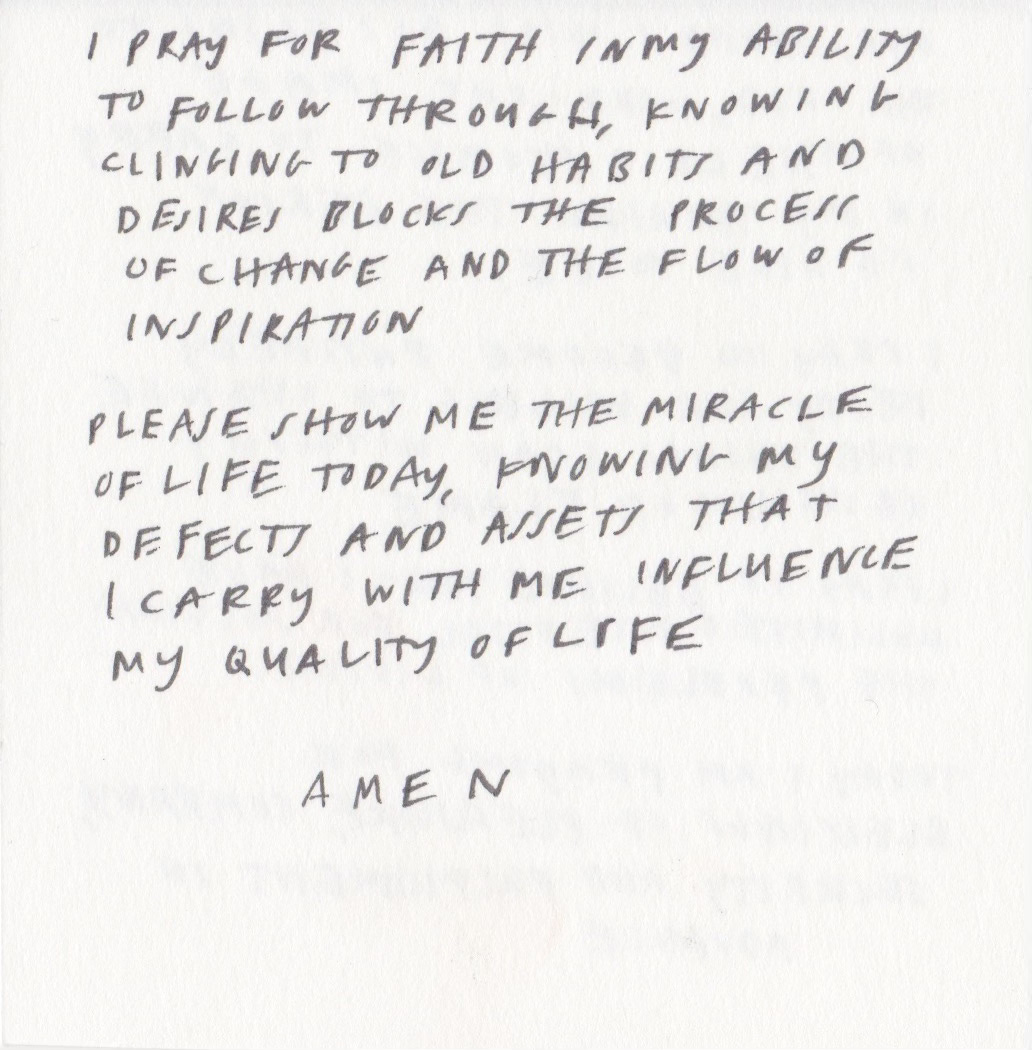 I PRAY FOR FAITH IN MY ABILITY
TO FOLLOW THROUGH, KNOWING
CLINGING TO OLD HABITS AND
DESIRES BLOCKS THE PROCESS
OF CHANGE AND THE FLOW OF
INSPIRATION
PLEASE SHOW ME THE MIRACLE
OF LIFE TODAY, KNOWING MY
DEFECTS AND ASSETS THAT
I CARRY WITH ME INFLUENCE
MY QUALITY OF LIFE
AMEN